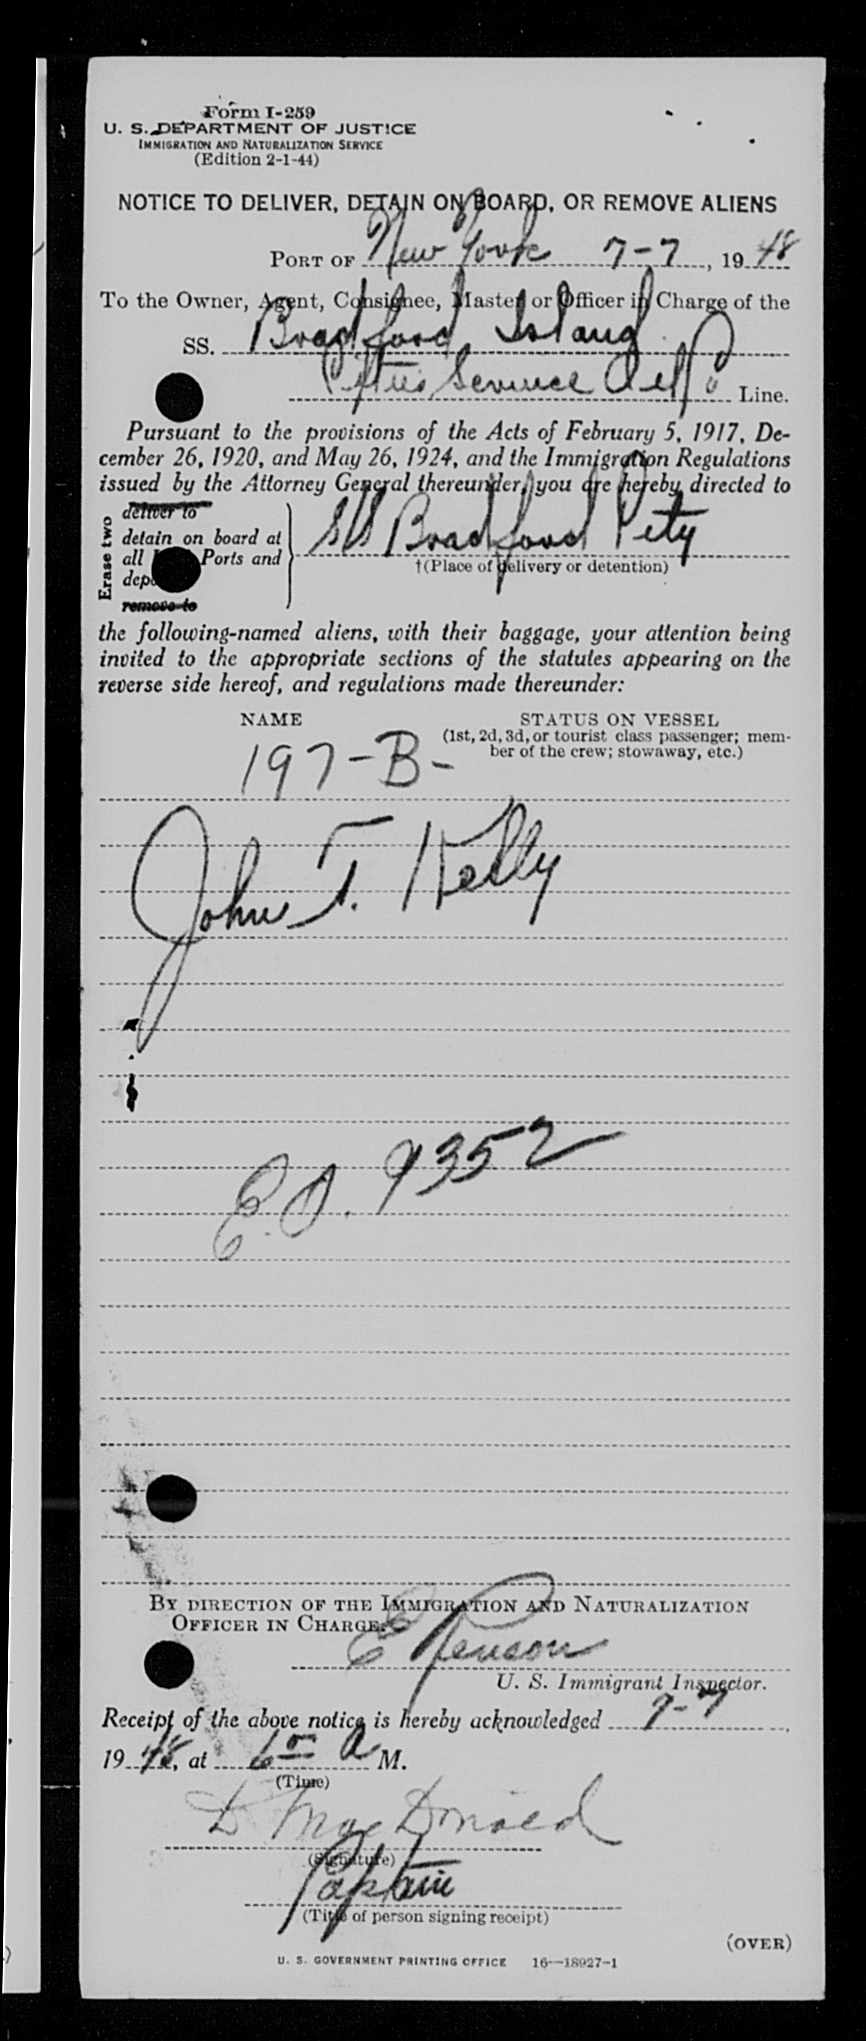 Form I-259
U. S. DEPARTMENT OF JUSTICE
IMMIGRATION AND NATURALIZATION SERVICE
(Edition 2-1-44)
NOTICE TO DELIVER, DETAIN ON BOARD, OR REMOVE ALIENS
PORT OF New York 7-7, 1948
To the Owner, Agent, Consignee, Master or Officer in Charge of the
SS. Bradford Island
Cities Service Oil Co Line.
Pursuant to the provisions of the Acts of February 5, 1917, De-
cember 26, 1920, and May 26, 1924, and the Immigration Regulations
issued by the Attorney General thereunder, you are hereby directed to
Erase two
deliver to
detain on board at
all Ports and
remove to
SS Bradford City
†(Place of delivery or detention)
the following-named aliens, with their baggage, your attention being
invited to the appropriate sections of the statutes appearing on the
reverse side hereof, and regulations made thereunder:
NAME STATUS ON VESSEL
(1st, 2d, 3d, or tourist class passenger; mem-
ber of the crew; stowaway, etc.)
197-B-
John T. Kelly
E.O. 9352
BY DIRECTION OF THE IMMIGRATION AND NATURALIZATION
OFFICER IN CHARGE:
E
U. S. Immigrant Inspector.
Receipt of the above notice is hereby acknowledged 7-7,
1948, at 6 00 A M.
(Time)
D MacDonald
(Signature)
Captain
(Title of person signing receipt)
(OVER)
U. S. GOVERNMENT PRINTING OFFICE 16—18927-1